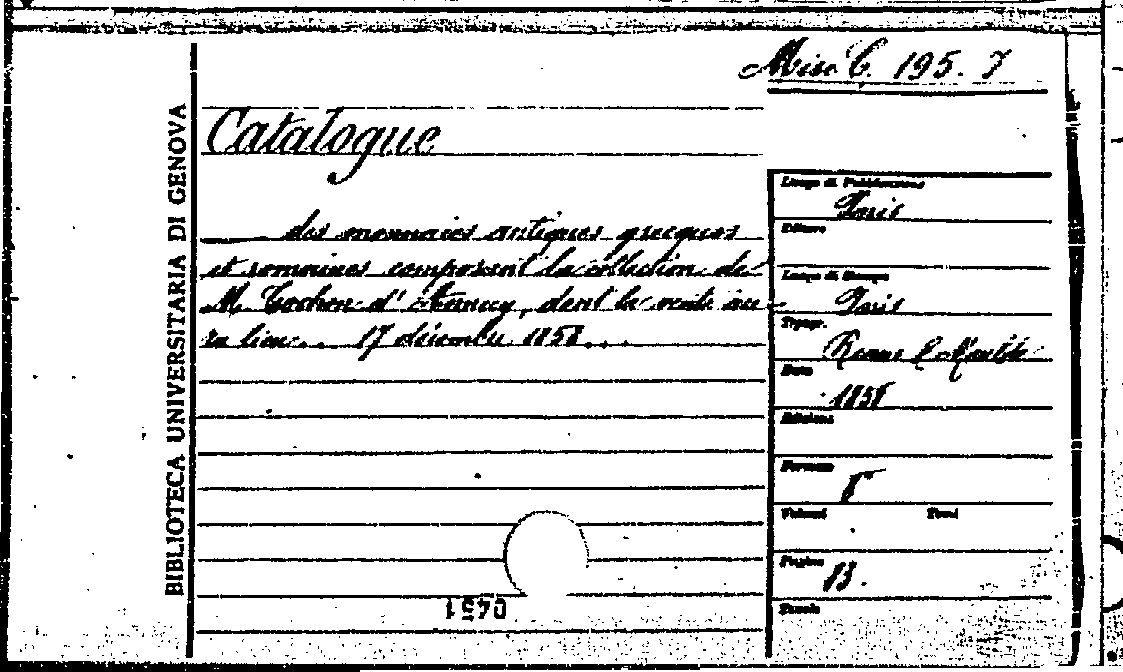 Misc. C. 195. 7
BIBLIOTECA UNIVERSITARIA DI GENOVA
Catalogue
des monnaies antiques grecques
et romaines composant la collection de
M. Cochon d'Annecy, dont la vente au-
ra lieu... 17 décembre 1858...
Luogo di Pubblicazione
Paris
Editore
Luogo di Stampa
Paris
Tipogr.
Renou & Maulde
Data
1858
Edizione
Formato
8
Volumi Tomi
Pagine
13.
Tavole
0451